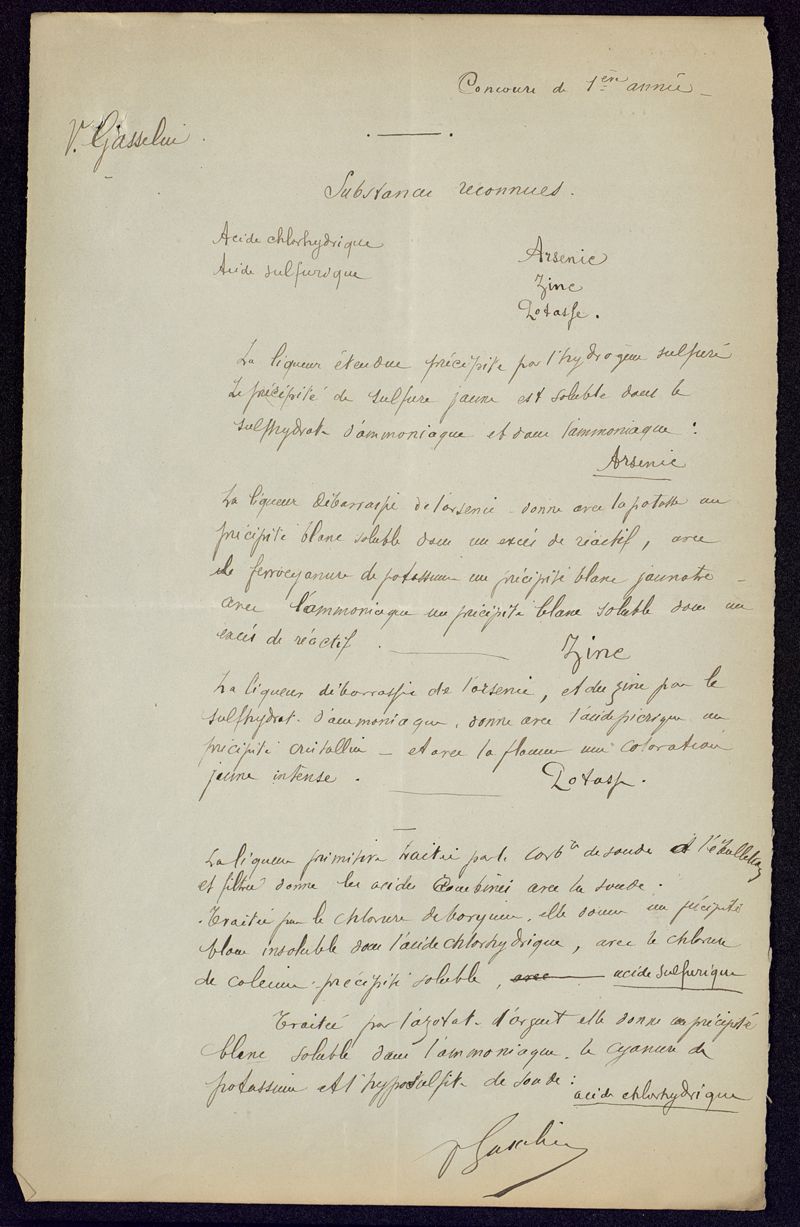 Concours de 1ère année
V. Gasselin
Substances reconnues.
Acide chlorhydrique
Acide sulfurique
Arsenic
Zinc
Potasse.
La liqueur étendue précipite par l'hydrogène sulfuré
Le précipité de sulfure jaune est soluble dans le
sulfhydrate d'ammoniaque et dans l'ammoniaque :
Arsenic
La liqueur débarrassée de l'arsenic donne avec la potasse un
précipité blanc soluble dans un excès de réactif, avec
le ferrocyanure de potassium un précipité blanc jaunâtre –
avec l'ammoniaque un précipité blanc soluble dans un
excès de réactif.
Zinc
La liqueur débarrassée de l'arsenic, et du zinc par le
sulfhydrate d'ammoniaque, donne avec l'acide picrique un
précipité cristallin – et avec la flamme une coloration
jaune intense.
Potasse.
La liqueur primitive traitée par le carbte de soude à l'ébullition
et filtrée donne les acides combinés avec la soude.
Traitée par le chlorure de baryum, elle donne un précipité
blanc insoluble dans l'acide chlorhydrique, avec le chlorure
de calcium précipité soluble, avec acide sulfurique
Traitée par l'azotate d'argent elle donne un précipité
blanc soluble dans l'ammoniaque, le cyanure de
potassium et l'hyposulfite de soude :
acide chlorhydrique
V Gasselin